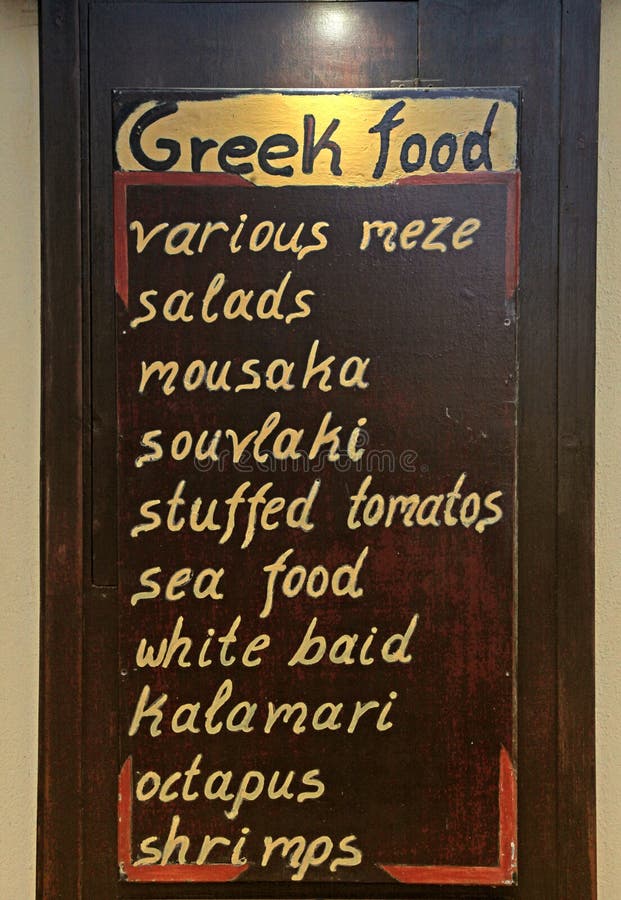 Greek food
various meze
salads
mousaka
souvlaki
dreamstime.com
stuffed tomatos
sea food
white baid
kalamari
octapus
shrimps